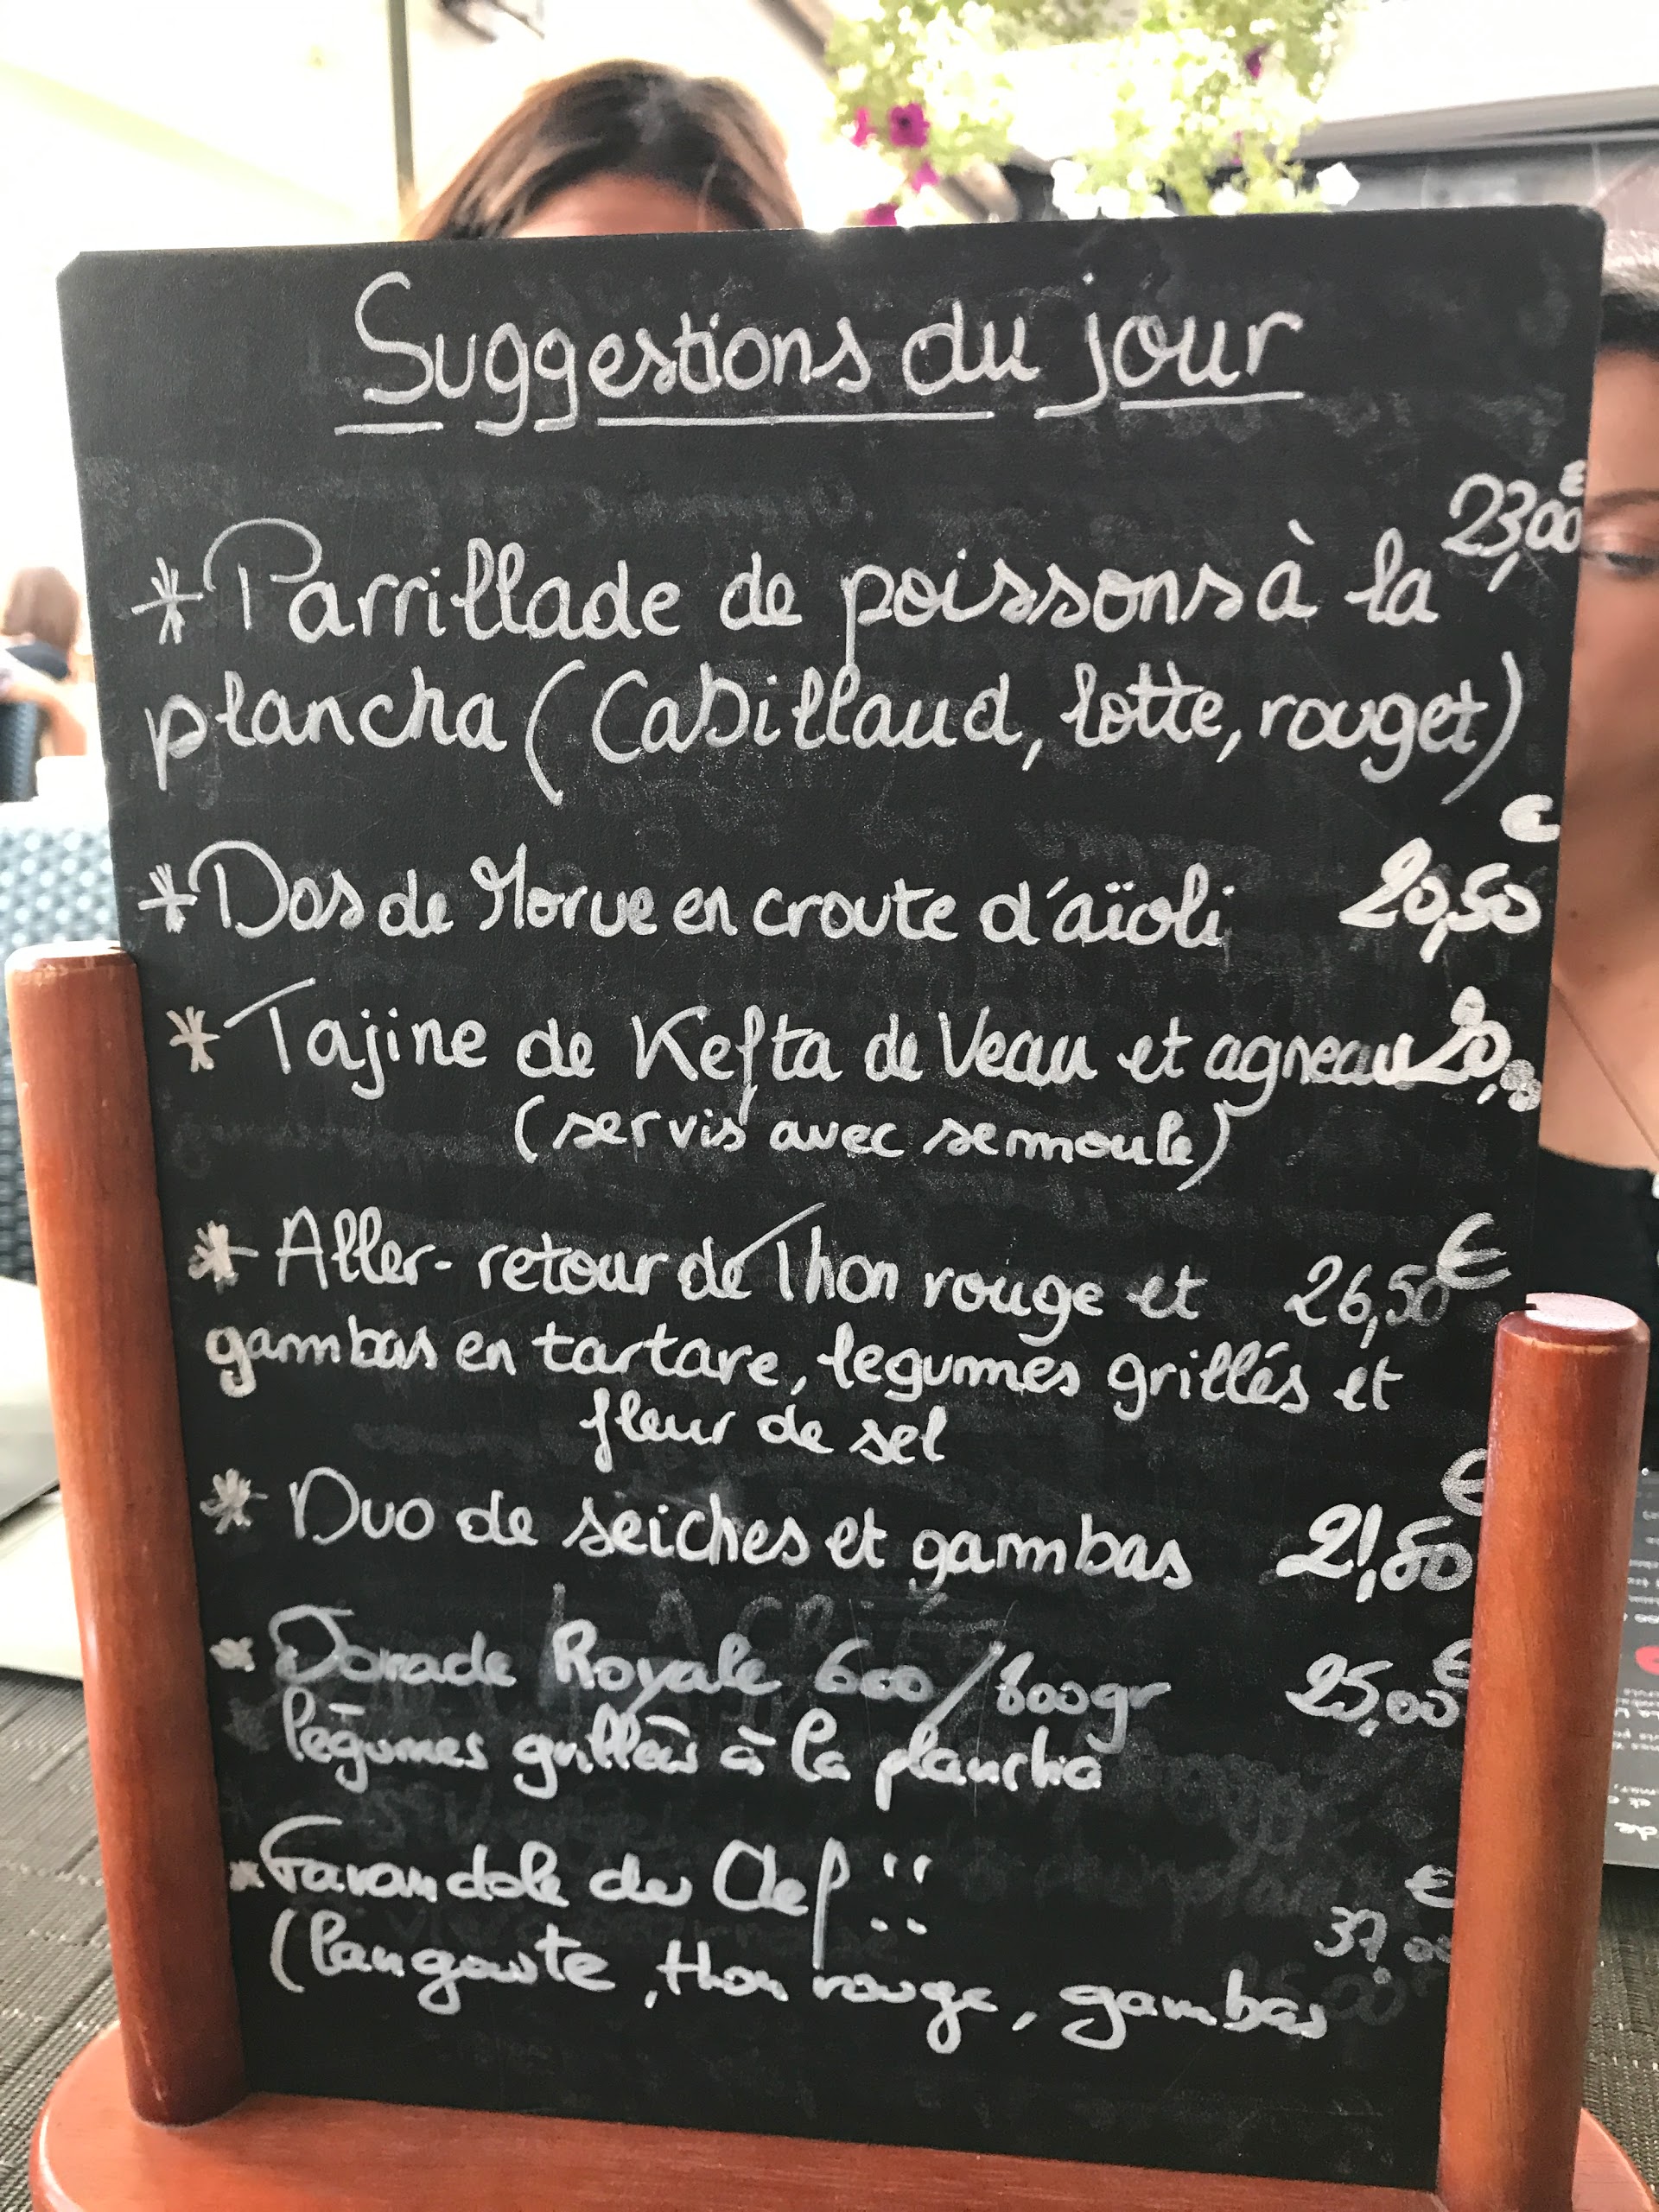 Suggestions du jour
23,00€
*Parrillade de poissons à la
plancha (Cabillaud, lotte, rouget)
€
*Dos de Morue en croute d'aïoli 20,50
*Tajine de Kefta de Veau et agneau 20,00
(servis avec semoule)
* Aller-retour de Thon rouge et 26,50€
gambas en tartare, legumes grillés et
fleur de sel
€
* Duo de seiches et gambas 21,50
* Dorade Royale 600/800gr 25,00€
légumes grillés à la plancha
*Farandole du Chef !! €
37,00
(langouste, thon rouge, gambas